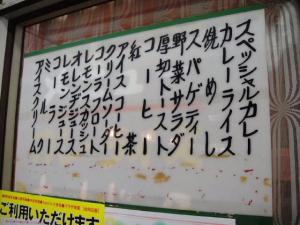 スペシャルカレー
カレーライス
焼めし
スパゲティー
野菜サラダ
厚切トースト
コーヒー
紅茶
アイスコーヒー
クリームソーダー
コーラフロート
オレンジジュース
レモンスカッシュ
レモンジュース
コーラ
ミルク
アイスクリーム
ご利用いただけます